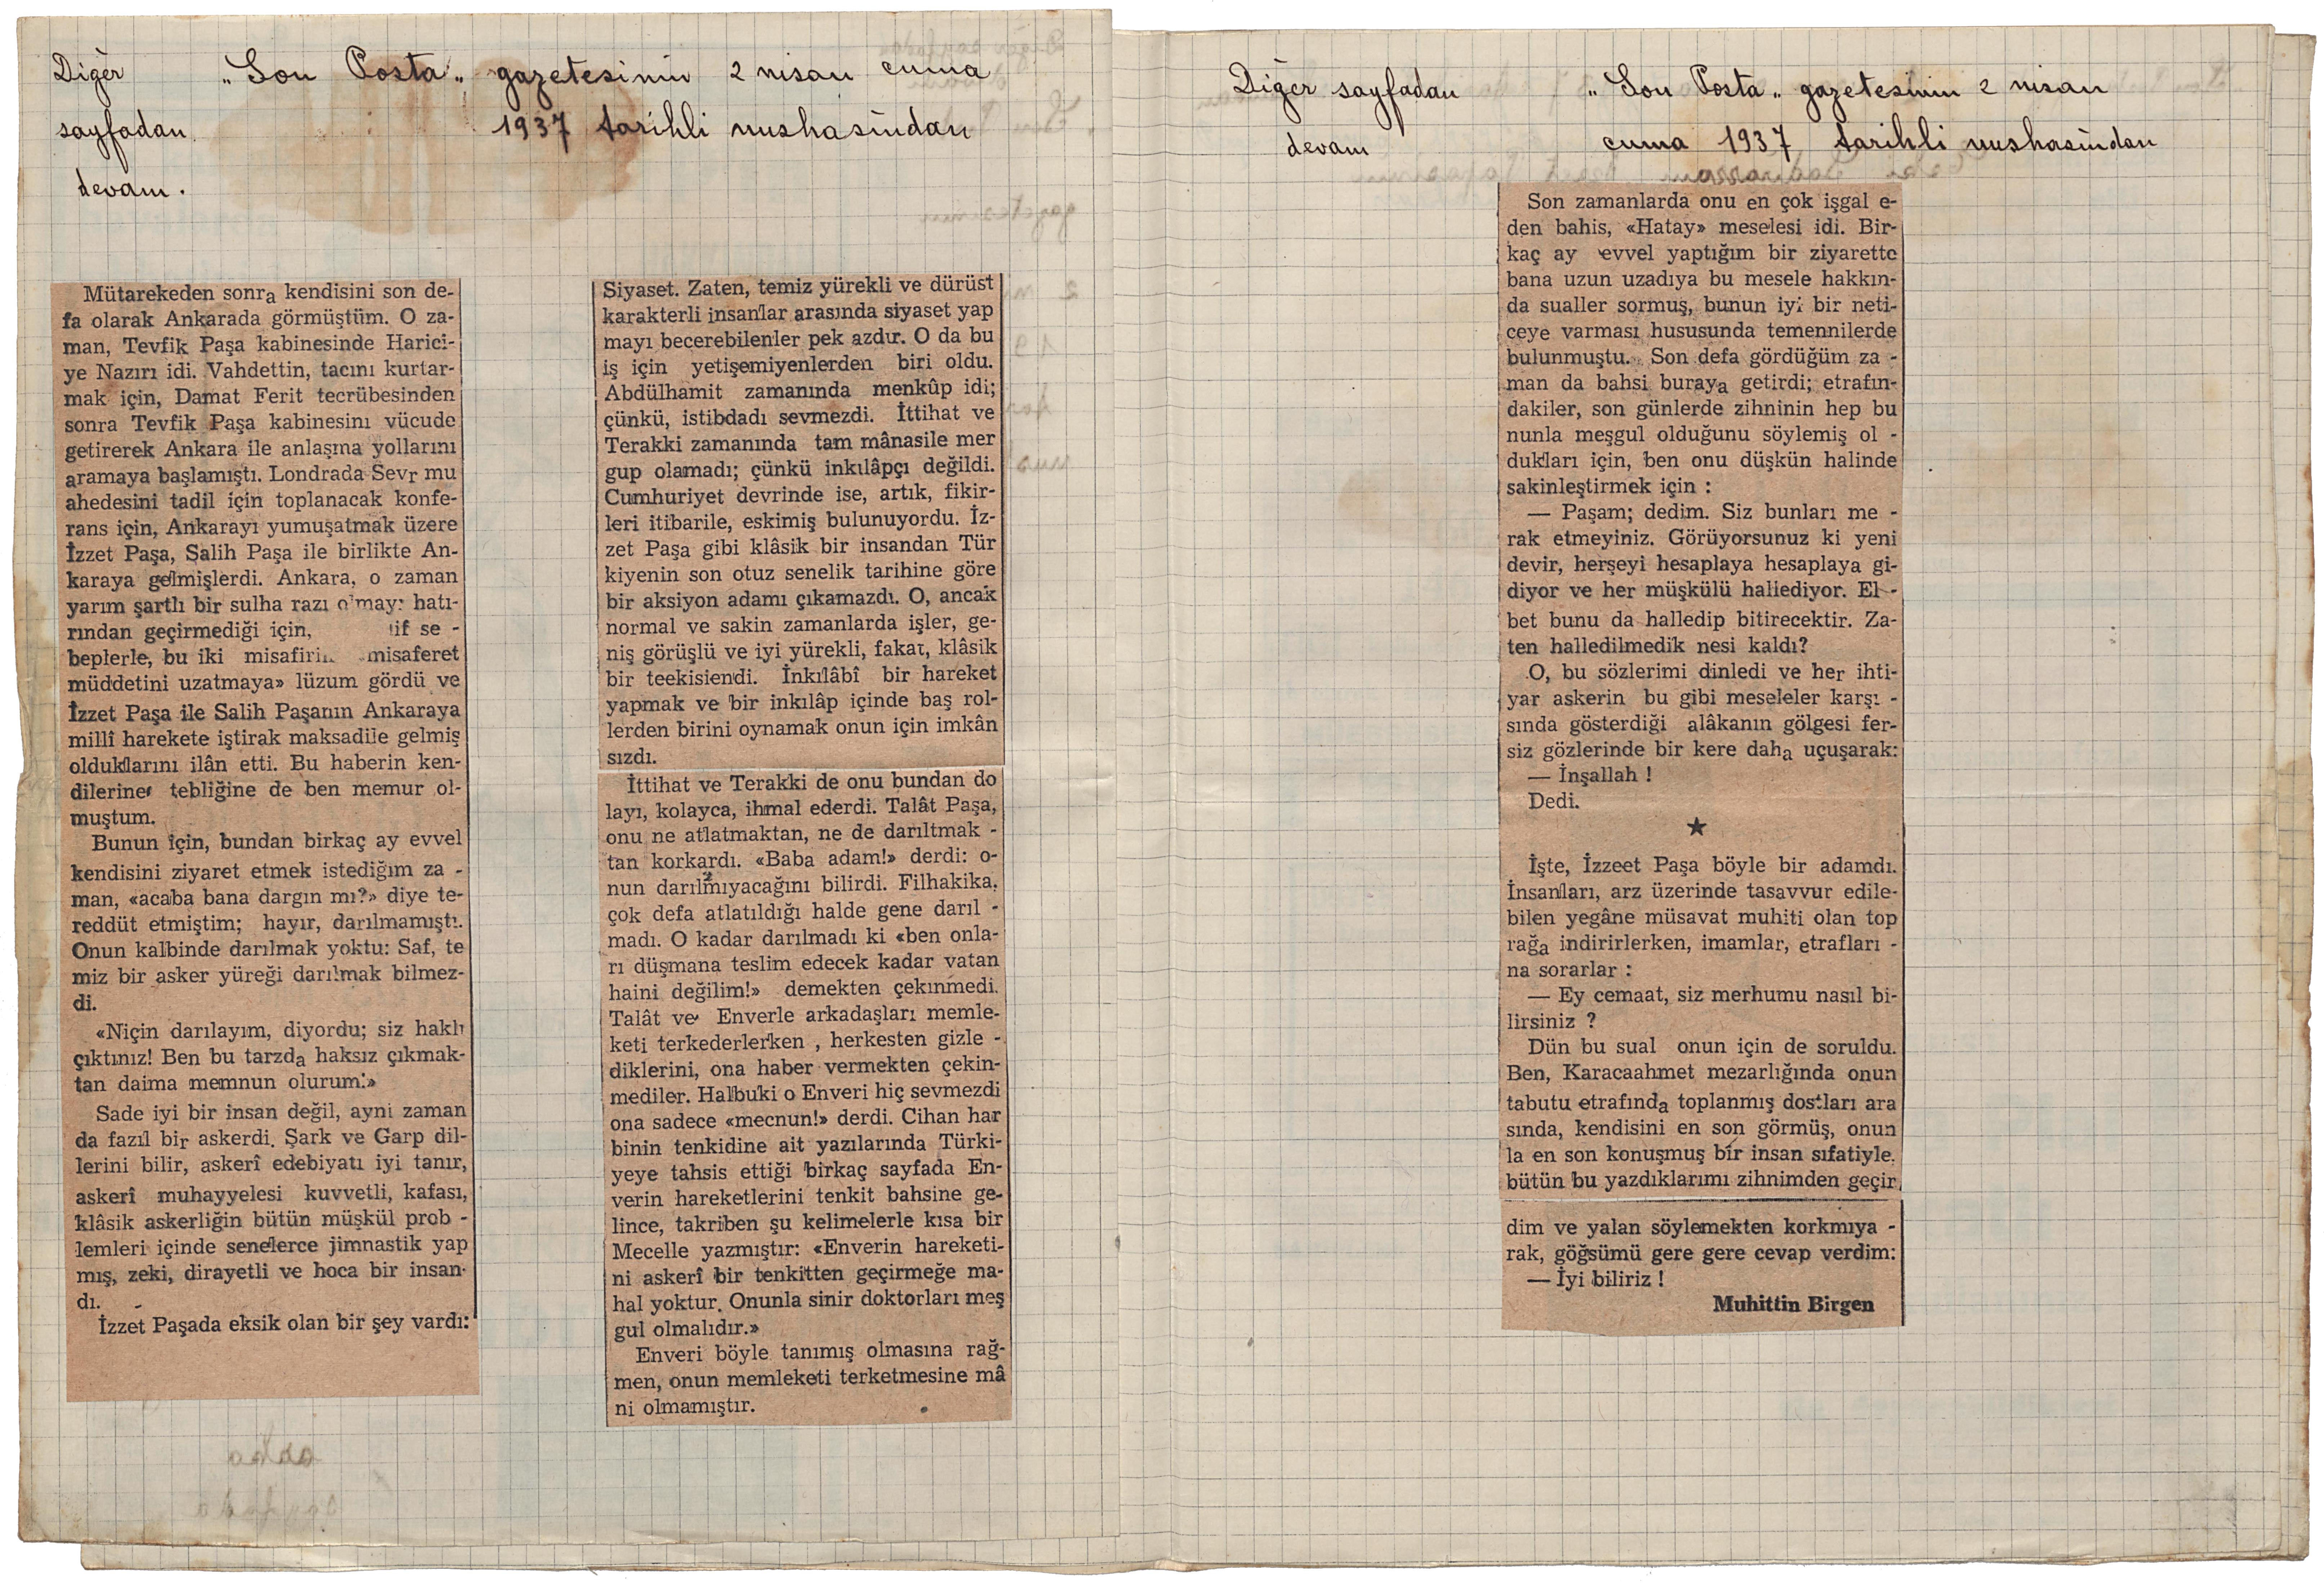 Diğer
sayfadan
devam.
„Son Posta„ gazetesinin 2 nisan cuma
1937 tarihli nushasından
Mütarekeden sonra kendisini son de-
fa olarak Ankarada görmüştüm. O za-
man, Tevfik Paşa kabinesinde Harici-
ye Nazırı idi. Vahdettin, tacını kurtar-
mak için, Damat Ferit tecrübesinden
sonra Tevfik Paşa kabinesini vücude
getirerek Ankara ile anlaşma yollarını
aramaya başlamıştı. Londrada Sevr mu
ahedesini tadil için toplanacak konfe-
rans için, Ankarayı yumuşatmak üzere
İzzet Paşa, Salih Paşa ile birlikte An-
karaya gelmişlerdi. Ankara, o zaman
yarım şartlı bir sulha razı olmayı hatı-
rından geçirmediği için, se -
beplerle, bu iki misafirin misaferet
müddetini uzatmaya» lüzum gördü ve
İzzet Paşa ile Salih Paşanın Ankaraya
millî harekete iştirak maksadile gelmiş
olduklarını ilân etti. Bu haberin ken-
dilerine tebliğine de ben memur ol-
muştum.
Bunun için, bundan birkaç ay evvel
kendisini ziyaret etmek istediğim za -
man, «acaba bana dargın mı?» diye te-
reddüt etmiştim; hayır, darılmamıştı.
Onun kalbinde darılmak yoktu: Saf, te
miz bir asker yüreği darılmak bilmez-
di.
«Niçin darılayım, diyordu; siz haklı
çıktınız! Ben bu tarzda haksız çıkmak-
tan daima memnun olurum!»
Sade iyi bir insan değil, ayni zaman
da fazıl bir askerdi. Şark ve Garp dil-
lerini bilir, askerî edebiyatı iyi tanır,
askerî muhayyelesi kuvvetli, kafası,
klâsik askerliğin bütün müşkül prob -
lemleri içinde senelerce jimnastik yap
mış, zeki, dirayetli ve hoca bir insan-
dı.
İzzet Paşada eksik olan bir şey vardı:
Siyaset. Zaten, temiz yürekli ve dürüst
karakterli insanlar arasında siyaset yap
mayı becerebilenler pek azdır. O da bu
iş için yetişemiyenlerden biri oldu.
Abdülhamit zamanında menkûp idi;
çünkü, istibdadı sevmezdi. İttihat ve
Terakki zamanında tam mânasile mer
gup olamadı; çünkü inkılâpçı değildi.
Cumhuriyet devrinde ise, artık, fikir-
leri itibarile, eskimiş bulunuyordu. İz-
zet Paşa gibi klâsik bir insandan Tür
kiyenin son otuz senelik tarihine göre
bir aksiyon adamı çıkamazdı. O, ancak
normal ve sakin zamanlarda işler, ge-
niş görüşlü ve iyi yürekli, fakat, klâsik
bir teekisiendi. İnkılâbî bir hareket
yapmak ve bir inkılâp içinde baş rol-
lerden birini oynamak onun için imkân
sızdı.
İttihat ve Terakki de onu bundan do
layı, kolayca, ihmal ederdi. Talât Paşa,
onu ne atlatmaktan, ne de darıltmak -
tan korkardı. «Baba adam!» derdi: o-
nun darılmıyacağını bilirdi. Filhakika,
çok defa atlatıldığı halde gene darıl -
madı. O kadar darılmadı ki «ben onla-
rı düşmana teslim edecek kadar vatan
haini değilim!» demekten çekinmedi.
Talât ve Enverle arkadaşları memle-
keti terkederlerken , herkesten gizle -
diklerini, ona haber vermekten çekin-
mediler. Halbuki o Enveri hiç sevmezdi
ona sadece «mecnun!» derdi. Cihan har
binin tenkidine ait yazılarında Türki-
yeye tahsis ettiği birkaç sayfada En-
verin hareketlerini tenkit bahsine ge-
lince, takriben şu kelimelerle kısa bir
Mecelle yazmıştır: «Enverin hareketi-
ni askerî bir tenkitten geçirmeğe ma-
hal yoktur. Onunla sinir doktorları meş
gul olmalıdır.»
Enveri böyle tanımış olmasına rağ-
men, onun memleketi terketmesine mâ
ni olmamıştır.
Diğer sayfadan
devam
„Son Posta„ gazetesinin 2 nisan
cuma 1937 tarihli nushasından
Son zamanlarda onu en çok işgal e-
den bahis, «Hatay» meselesi idi. Bir-
kaç ay evvel yaptığım bir ziyarette
bana uzun uzadıya bu mesele hakkın-
da sualler sormuş, bunun iyi bir neti-
ceye varması hususunda temennilerde
bulunmuştu. Son defa gördüğüm za -
man da bahsi buraya getirdi; etrafın-
dakiler, son günlerde zihninin hep bu
nunla meşgul olduğunu söylemiş ol -
dukları için, ben onu düşkün halinde
sakinleştirmek için :
— Paşam; dedim. Siz bunları me -
rak etmeyiniz. Görüyorsunuz ki yeni
devir, herşeyi hesaplaya hesaplaya gi-
diyor ve her müşkülü hallediyor. El -
bet bunu da halledip bitirecektir. Za-
ten halledilmedik nesi kaldı?
O, bu sözlerimi dinledi ve her ihti-
yar askerin bu gibi meseleler karşı -
sında gösterdiği alâkanın gölgesi fer-
siz gözlerinde bir kere daha uçuşarak:
— İnşallah !
Dedi.
★
İşte, İzzeet Paşa böyle bir adamdı.
İnsanları, arz üzerinde tasavvur edile-
bilen yegâne müsavat muhiti olan top
rağa indirirlerken, imamlar, etrafları -
na sorarlar :
— Ey cemaat, siz merhumu nasıl bi-
lirsiniz ?
Dün bu sual onun için de soruldu.
Ben, Karacaahmet mezarlığında onun
tabutu etrafında toplanmış dostları ara
sında, kendisini en son görmüş, onun
la en son konuşmuş bir insan sıfatiyle,
bütün bu yazdıklarımı zihnimden geçir
dim ve yalan söylemekten korkmıya -
rak, göğsümü gere gere cevap verdim:
— İyi biliriz !
Muhittin Birgen